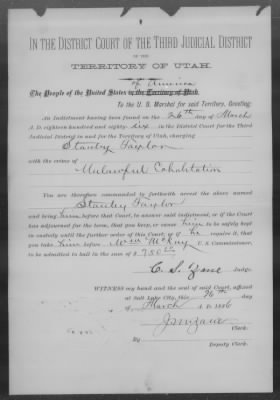 IN THE DISTRICT COURT OF THE THIRD JUDICIAL DISTRICT
OF THE
TERRITORY OF UTAH.
of America
The People of the United States in the Territory of Utah.
To the U. S. Marshal for said Territory, Greeting:
An Indictment having been found on the 26th day of March
A. D. eighteen hundred and eighty-six in the District Court for the Third
Judicial District in and for the Territory of Utah, charging
Stanley Taylor
with the crime of
Unlawful Cohabitation
You are therefore commanded to forthwith arrest the above named
Stanley Taylor
and bring him before that Court, to answer said indictment, or if the Court
has adjourned for the term, that you, or cause him to be safely kept
in custody until the further order of this Court, or if he require it, that
you take him before Wm McKay U. S. Commissioner,
to be admitted to bail in the sum of $750
C. S. Zane Judge.
WITNESS my hand and the seal of said Court, affixed
at Salt Lake City, this 26th day
of March A. D. 1886
Clerk.
By
Deputy Clerk.